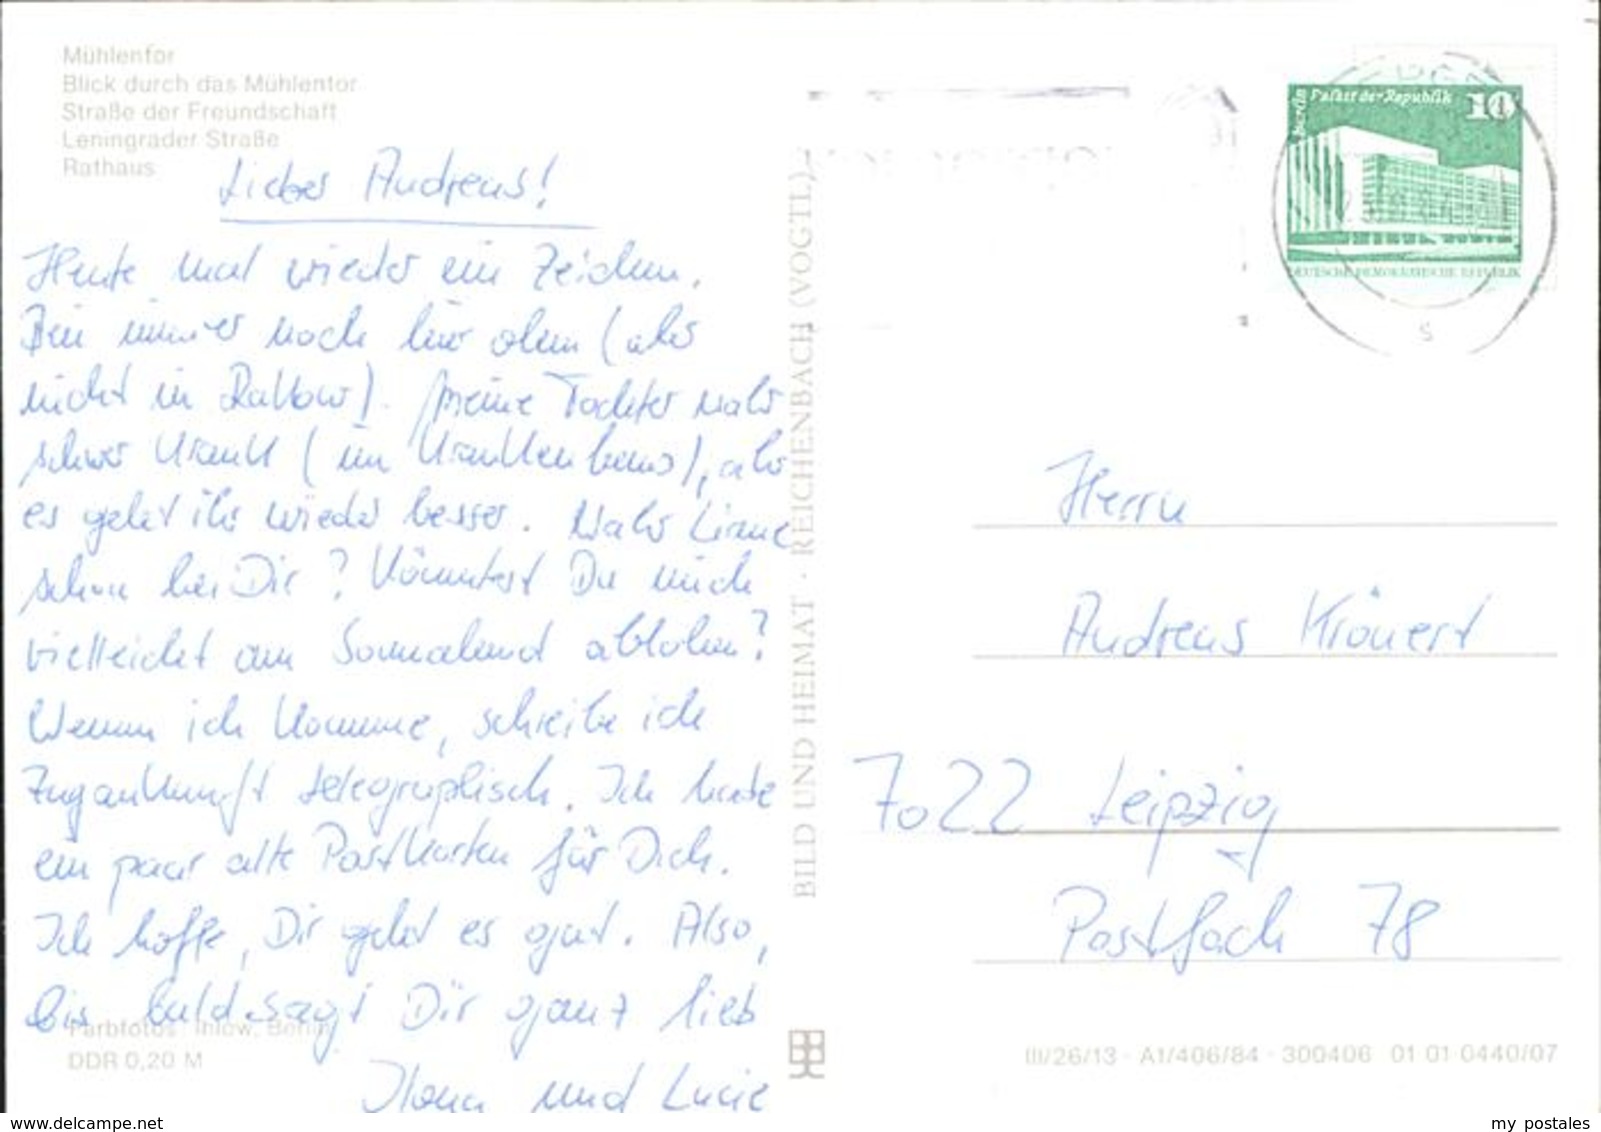 Mühlentor
Blick durch das Mühlentor
Straße der Freundschaft
Leningrader Straße
Rathaus
Lieber Andreas!
Heute mal wieder ein Zeichen.
Bin immer noch hier oben (aber
nicht in Rattow). Meine Tochter wahr
schwer krank (im Krankenhaus), aber
es geht ihr wieder besser. Wahr Liane
schon bei Dir? Könntest Du mich
vielleicht am Sonnabend abholen?
Wenn ich komme, schreibe ich
Zugankunft telegraphisch. Ich habe
ein paar alte Postkarten für Dich.
Ich hoffe, Dir geht es gut. Also,
bis bald sagt Dir ganz lieb
Ilona und Lucie
Farbfotos: Ihlow, Berlin
DDR 0,20 M
BILD UND HEIMAT · REICHENBACH (VOGTL)
Berlin Palast der Republik 10
DEUTSCHE DEMOKRATISCHE REPUBLIK
s
Herrn
Andreas Krönert
7022 Leipzig
Postfach 78
III/26/13 · A1/406/84 · 300406 01 01 0440/07
www.my-postales.com
my postales